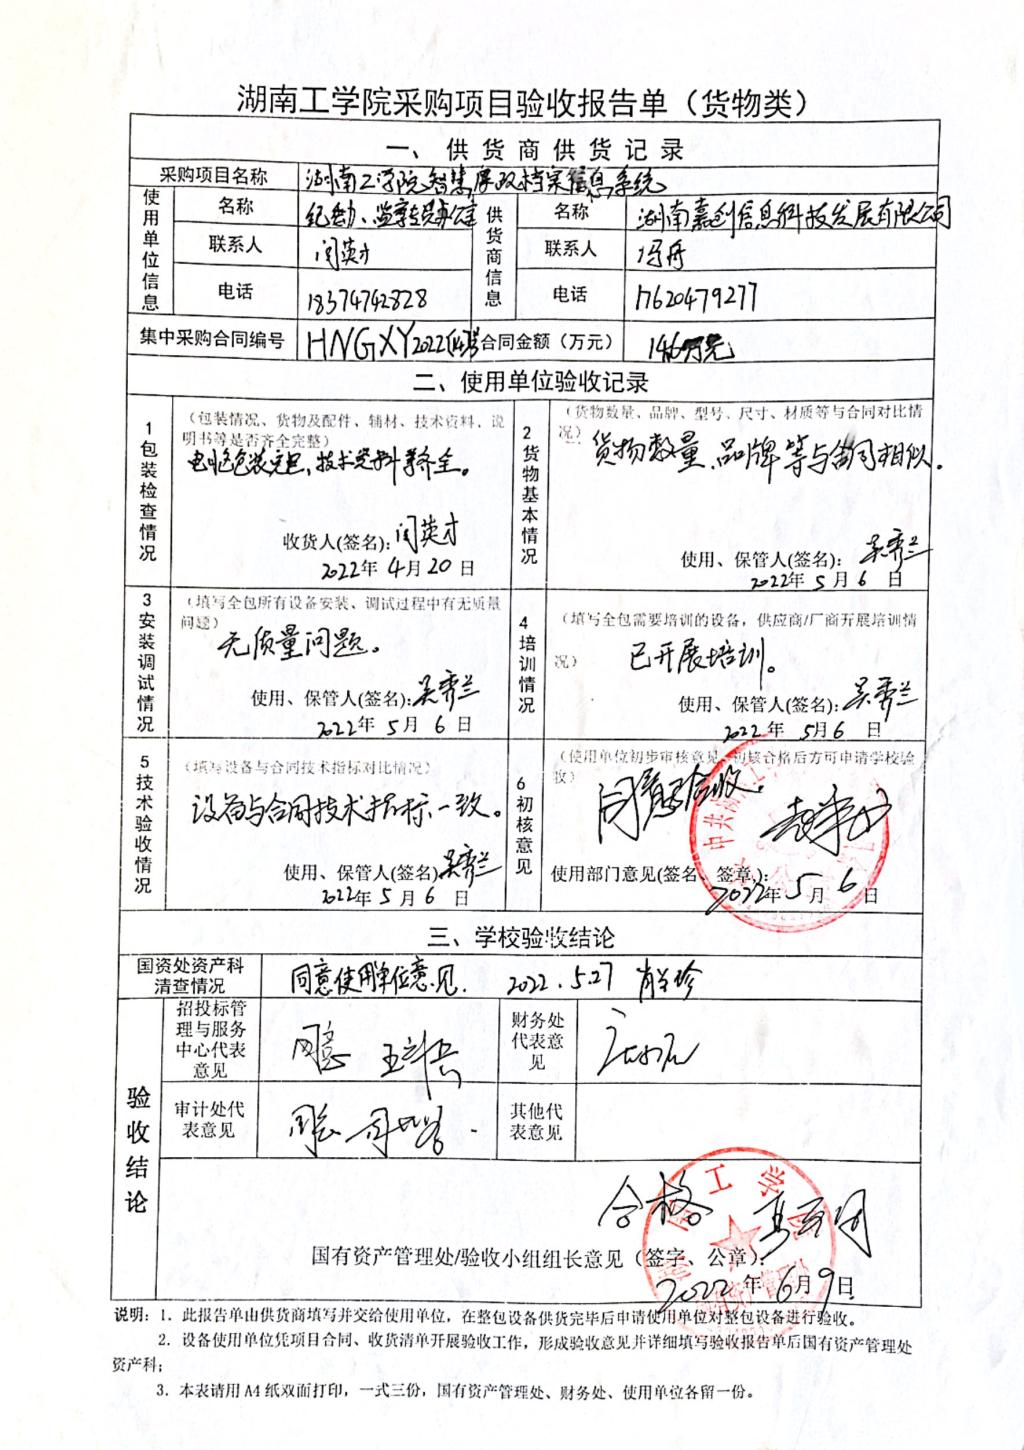 湖南工学院采购项目验收报告单（货物类）
一、供货商供货记录
采购项目名称 湖南工学院智慧廉政档案信息系统
使用单位信息 名称 纪委办、监察专员办公室 供货商信息 名称 湖南嘉创信息科技发展有限公司
联系人 闫英才 联系人 冯舟
电话 18374742828 电话 17620479277
集中采购合同编号 HNGXY2022 合同金额（万元） 14.6万元
二、使用单位验收记录
1包装检查情况 （包装情况、货物及配件、辅材、技术资料、说明书等是否齐全完整）
包装完包，技术资料等齐全。
收货人(签名)：闫英才
2022年4月20日
2货物基本情况 （货物数量、品牌、型号、尺寸、材质等与合同对比情况）
货物数量、品牌等与合同相似。
使用、保管人(签名)：吴秀兰
2022年5月6日
3安装调试情况 （填写全包所有设备安装、调试过程中有无质量问题）
无质量问题。
使用、保管人(签名)：吴秀兰
2022年5月6日
4培训情况 （填写全包需要培训的设备，供应商/厂商开展培训情况）
已开展培训。
使用、保管人(签名)：吴秀兰
2022年5月6日
5技术验收情况 （填写设备与合同技术指标对比情况）
设备与合同技术指标一致。
使用、保管人(签名)：吴秀兰
2022年5月6日
6初核意见 （使用单位初步审核意见，初核合格后方可申请学校验收）
同意验收。
使用部门意见(签名、签章)：
2022年5月6日
三、学校验收结论
国资处资产科清查情况 同意使用单位意见. 2022.5.27 肖兰珍
验收结论
招投标管理与服务中心代表意见 同意
财务处代表意见
审计处代表意见 同意
其他代表意见
合格
国有资产管理处/验收小组组长意见（签字、公章）：
2022年6月9日
说明：1．此报告单由供货商填写并交给使用单位，在整包设备供货完毕后申请使用单位对整包设备进行验收。
2．设备使用单位凭项目合同、收货清单开展验收工作，形成验收意见并详细填写验收报告单后国有资产管理处
资产科；
3．本表请用A4纸双面打印，一式三份，国有资产管理处、财务处、使用单位各留一份。